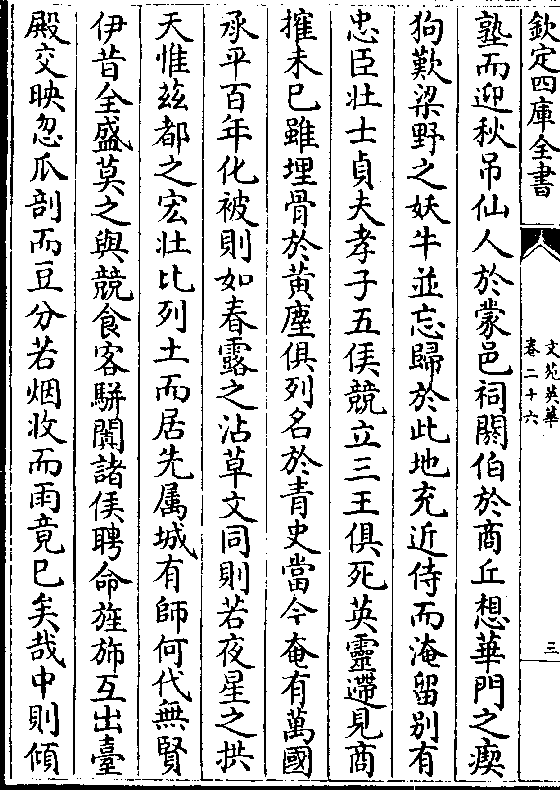 欽定四庫全書
文苑英華
卷二十六
三
塾而迎秋吊仙人於蒙邑祠閼伯於商丘想華門之瘈
狗歎梁野之妖牛並忘歸於此地充近侍而淹留别有
忠臣壮士貞夫孝子五侯競立三王俱死英靈遝見商
摧未已雖埋骨於黄塵俱列名於青史當今奄有萬國
承平百年化被則如春露之沾草文同則若夜星之拱
天惟兹都之宏壮比列土而居先属城有師何代無賢
伊昔全盛莫之與競食客駢闐諸侯聘命旌斾互出臺
殿交映忽瓜剖而豆分若烟收而雨竟已矣哉中則傾